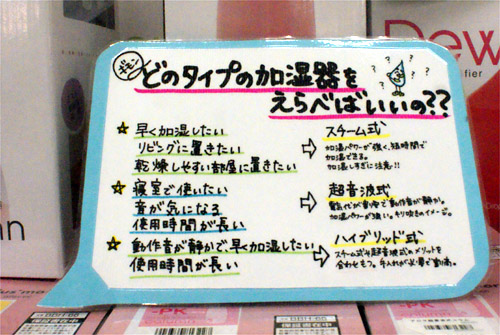 Dew
fier
ギモン
どのタイプの加湿器を
えらべばいいの??
? ? ? ?
☆ 早く加湿したい
リビングに置きたい
乾燥しやすい部屋に置きたい
⇨ スチーム式
加湿パワーが強く、短時間で
加湿できる。
加湿しすぎに注意!!
☆ 寝室で使いたい
音が気になる
使用時間が長い
⇨ 超音波式
電気代が割安で動作音が静か。
加湿パワーが強い。キリ吹きのイメージ。
☆ 動作音が静かで早く加湿したい
使用時間が長い
⇨ ハイブリッド式
スチーム式や超音波式のメリットを
合わせもつ。手入れが必要で割高。
-PK
保証書在中